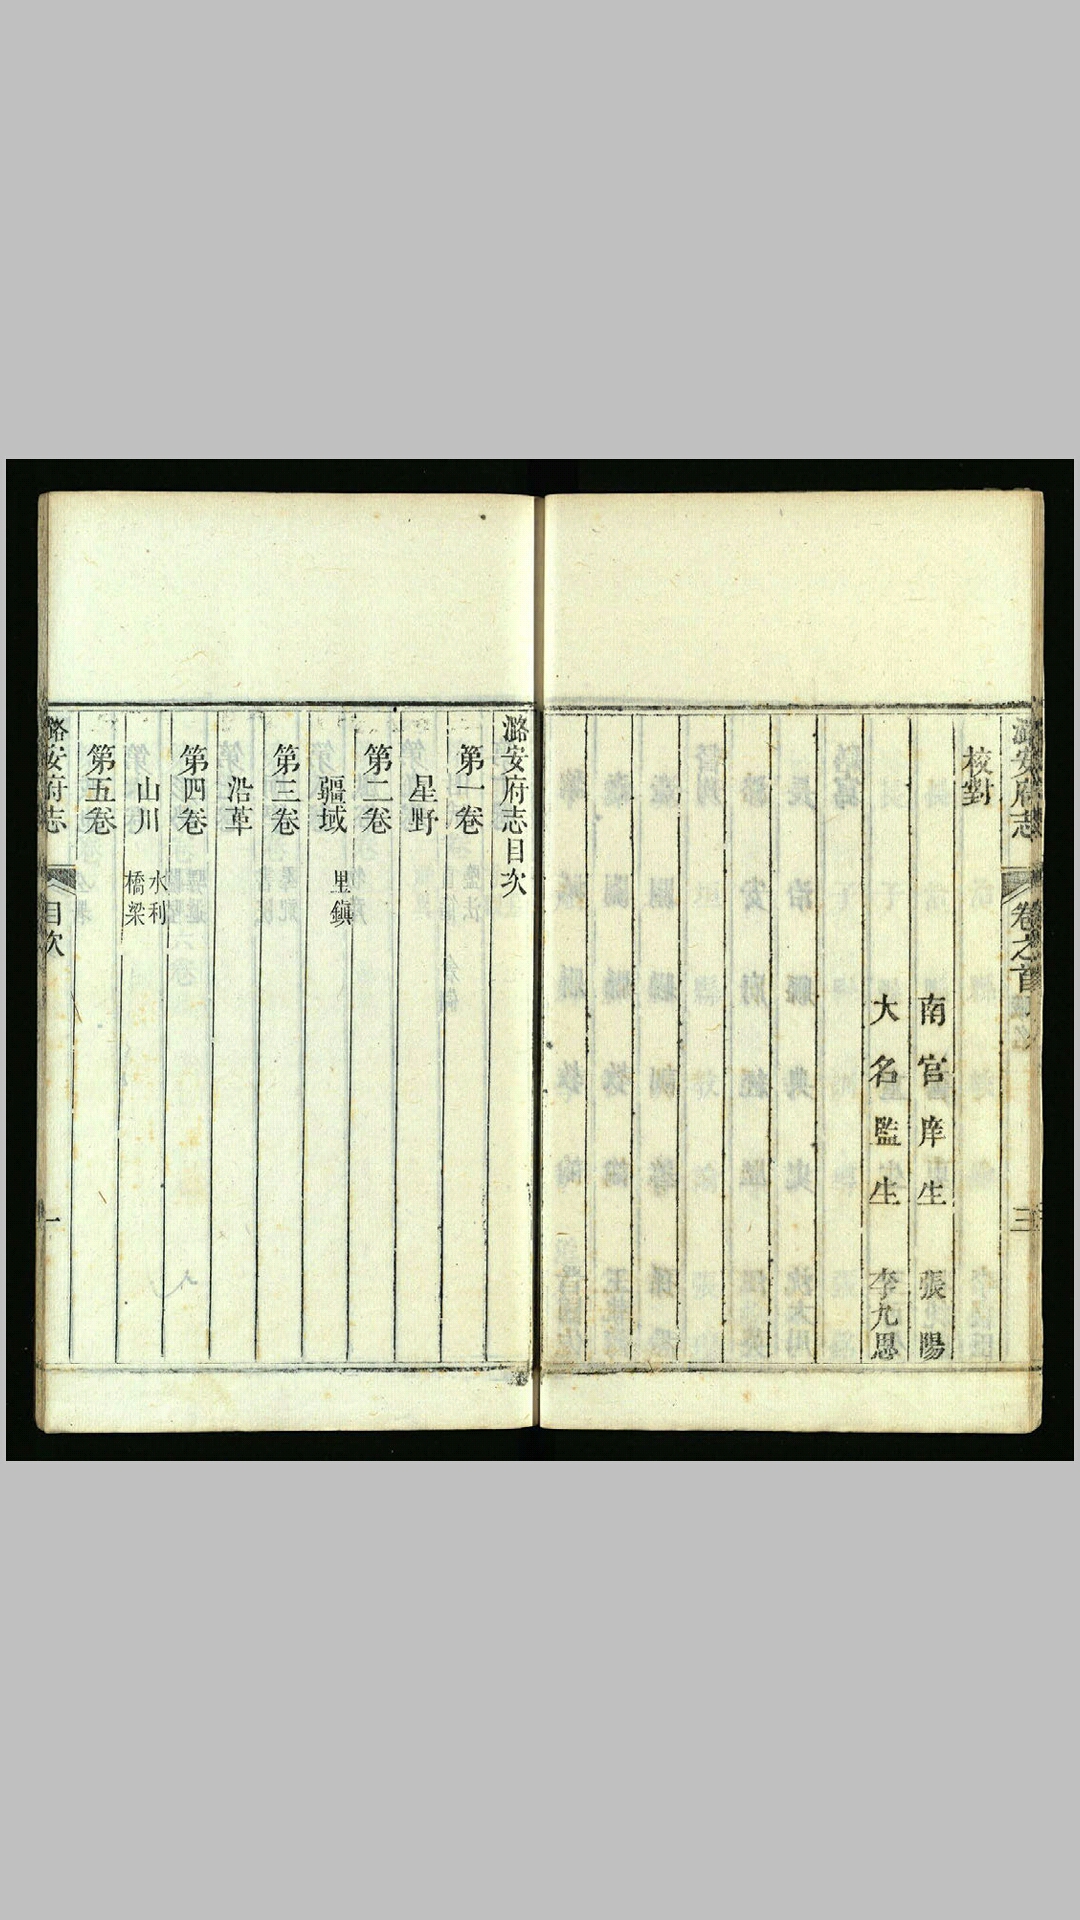 潞安府志
卷之首
三
校對
南宮庠生 張陽
大名監生 李九恩
潞安府志目次
第一卷
星野
第二卷
疆域 里鎮
第三卷
沿革
第四卷
山川 水利 橋梁
第五卷
潞安府志
目次
一